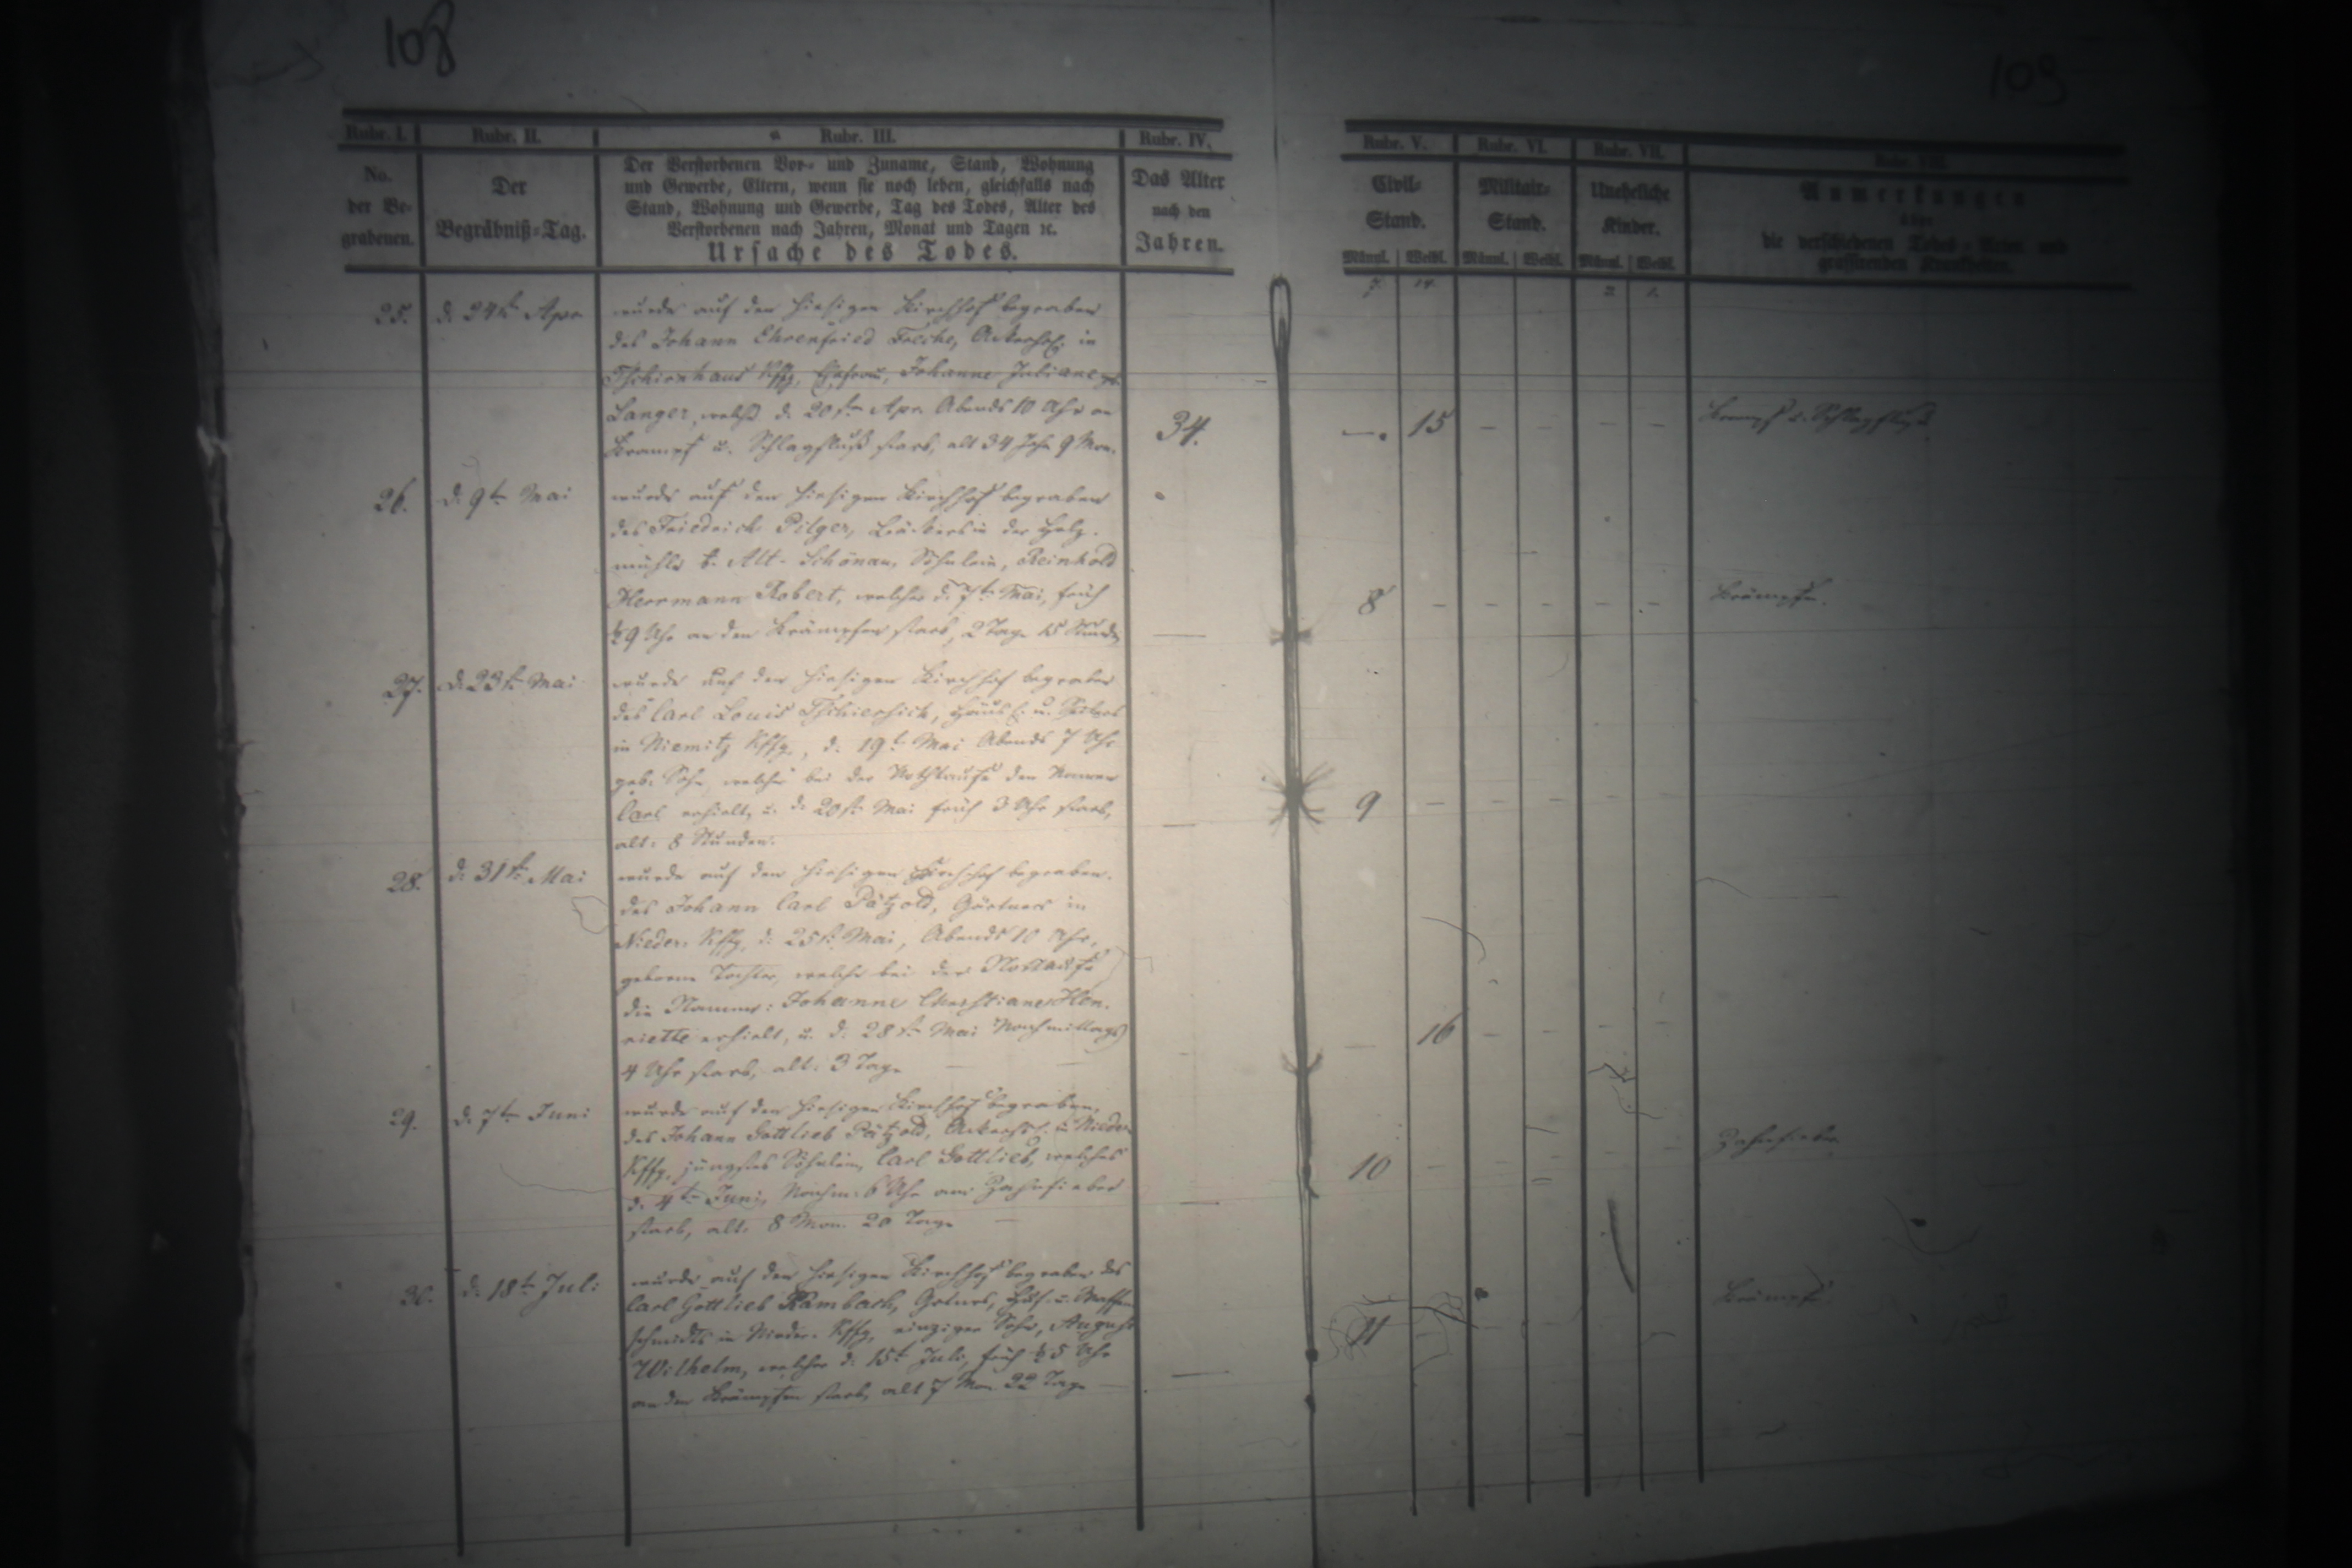 108
109
Rubr. I.
Rubr. II.
Rubr. III.
Rubr. IV.
Rubr. V.
Rubr. VI.
Rubr. VII.
Rubr. VIII.
No.
der Be-
grabenen.
Der
Begräbniß-Tag.
Der Verstorbenen Vor- und Zuname, Stand, Wohnung
und Gewerbe, Eltern, wenn sie noch leben, gleichfalls nach
Stand, Wohnung und Gewerbe, Tag des Todes, Alter des
Verstorbenen nach Jahren, Monat und Tagen ꝛc.
Ursache des Todes.
Das Alter
nach den
Jahren.
Civil-
Stand.
Militair-
Stand.
Uneheliche
Kinder.
Anmerkungen
über
die verschiedenen Todes-Arten und
grassirenden Krankheiten.
Männl. Weibl. Männl. Weibl. Männl. Weibl.
7. 14. 2. 1.
25. d. 24st. Apr.
wurde auf den hiesigen Kirchhof begraben
des Johann Ehrenfried in
Tschirnhaus Kffg, Ehefrau, Johanne Juliane geb.
Langer, welche d. 20st. Apr. Abends 10 Uhr an
Krampf u. Schlagfluß starb, alt 34 Jahr 9 Mon.
34. — 15 – – – – Krampf u. Schlagfluß
26. d. 9t. Mai
wurde auf den hiesigen Kirchhof begraben
des Friedrich Pilger, Bäckers in der Holz-
mühle b. Alt-Schönau, Söhnlein, Reinhold
Herrmann Robert, welcher d. 7t. Mai, früh
½9 Uhr an den Krämpfen starb, 2 Tage 15 Stunden
— 8 – – – – – Krämpfe.
27. d. 23st. Mai
wurde auf den hiesigen Kirchhof begraben
des Carl Louis Tschierschich, Häusl. u.
in Niemitz Kffg, d. 19t. Mai Abends 7 Uhr
geb. Sohn, welcher bei der Nothtaufe den Namen
Carl erhielt, u. d. 20st. Mai früh 3 Uhr starb,
alt: 8 Stunden.
— 9 – – – – –
28. d. 31st. Mai
wurde auf den hiesigen Kirchhof begraben.
des Johann Carl Pätzold, Gärtners in
Nieder-Kffg, d. 25st. Mai, Abends 10 Uhr,
geborene Tochter, welche bei der Nottaufe
die Namen: Johanne Christiane Hen-
riette erhielt, u. d. 28st. Mai Nachmittags
4 Uhr starb, alt: 3 Tage
— — 16 – – – –
29. d. 7t. Juni
wurde auf den hiesigen Kirchhof begraben,
des Johann Gottlieb Pätzold, in Nieder
Kffg, jüngstes Söhnlein, Carl Gottlieb, welches
d. 4t. Juni, Nachm. 6 Uhr am Zahnfieber
starb, alt: 8 Mon. 20 Tage
— 10 – – – – – Zahnfieber
30. d. 18t. Juli
wurde auf den hiesigen Kirchhof begraben des
Carl Gottlieb Rambach, Huf- u. Waffen-
schmidts in Nieder-Kffg, einziger Sohn, August
Wilhelm, welcher d. 15t. Juli, früh ½5 Uhr
an den Krämpfen starb, alt 7 Mon. 22 Tage
— 11 Krämpfe.